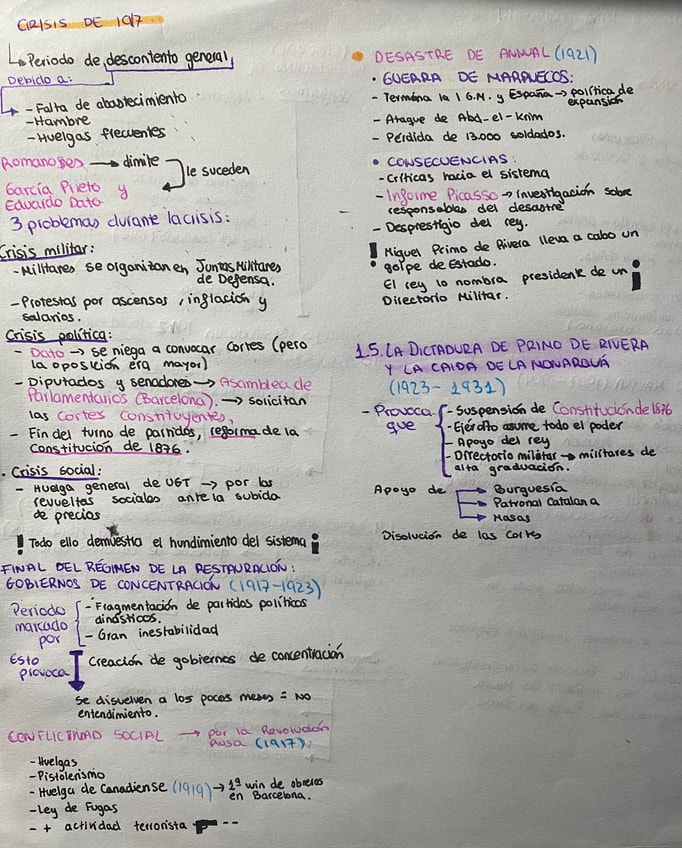 CRISIS DE 1917
↳ Periodo de descontento general
Debido a:
- Falta de abastecimiento
- Hambre
- Huelgas frecuentes
Romanones → dimite
le suceden
García Prieto y
Eduardo Dato
3 problemas durante la crisis:
Crisis militar:
- Militares se organizan en Juntas Militares
de Defensa.
- Protestas por ascensos, inflación y
salarios.
Crisis política:
- Dato → se niega a convocar cortes (pero
la oposición era mayor)
- Diputados y senadores → Asamblea de
Parlamentarios (Barcelona). → solicitan
las Cortes Constituyentes.
- Fin del turno de partidos, reforma de la
Constitución de 1876.
. Crisis social:
- Huelga general de UGT → por las
revueltas sociales ante la subida
de precios
! Todo ello demuestra el hundimiento del sistema ¡
FINAL DEL RÉGIMEN DE LA RESTAURACIÓN:
GOBIERNOS DE CONCENTRACIÓN (1917-1923)
Periodo
marcado
por
- Fragmentación de partidos políticos
dinásticos.
- Gran inestabilidad
Esto
provoca
Creación de gobiernos de concentración
Se disuelven a los pocos meses = NO
entendimiento.
CONFLICTIVIDAD SOCIAL → por la Revolución
Rusa (1917)
- Huelgas
- Pistolerismo
- Huelga de Canadiense (1919) → 1ª win de obreros
en Barcelona.
- Ley de Fugas
- + actividad terrorista --
DESASTRE DE ANNUAL (1921)
· GUERRA DE MARRUECOS:
- Termina la I G.M. y España → política de
expansión
- Ataque de Abd-el-Krim
- Pérdida de 13.000 soldados.
• CONSECUENCIAS:
- Críticas hacia el sistema
- Informe Picasso → Investigación sobre
responsables del desastre
- Desprestigio del rey.
! Miguel Primo de Rivera lleva a cabo un
golpe de Estado.
El rey lo nombra presidente de un ¡
Directorio Militar.
1.5. LA DICTADURA DE PRIMO DE RIVERA
Y LA CAIDA DE LA MONARQUÍA
(1923-1931)
- Provoca
que
- Suspensión de Constitución de 1876
- Ejército asume todo el poder
- Apoyo del rey
- Directorio militar → militares de
alta graduación.
Apoyo de
→ Burguesía
→ Patronal Catalana
→ Masas
Disolución de las Cortes